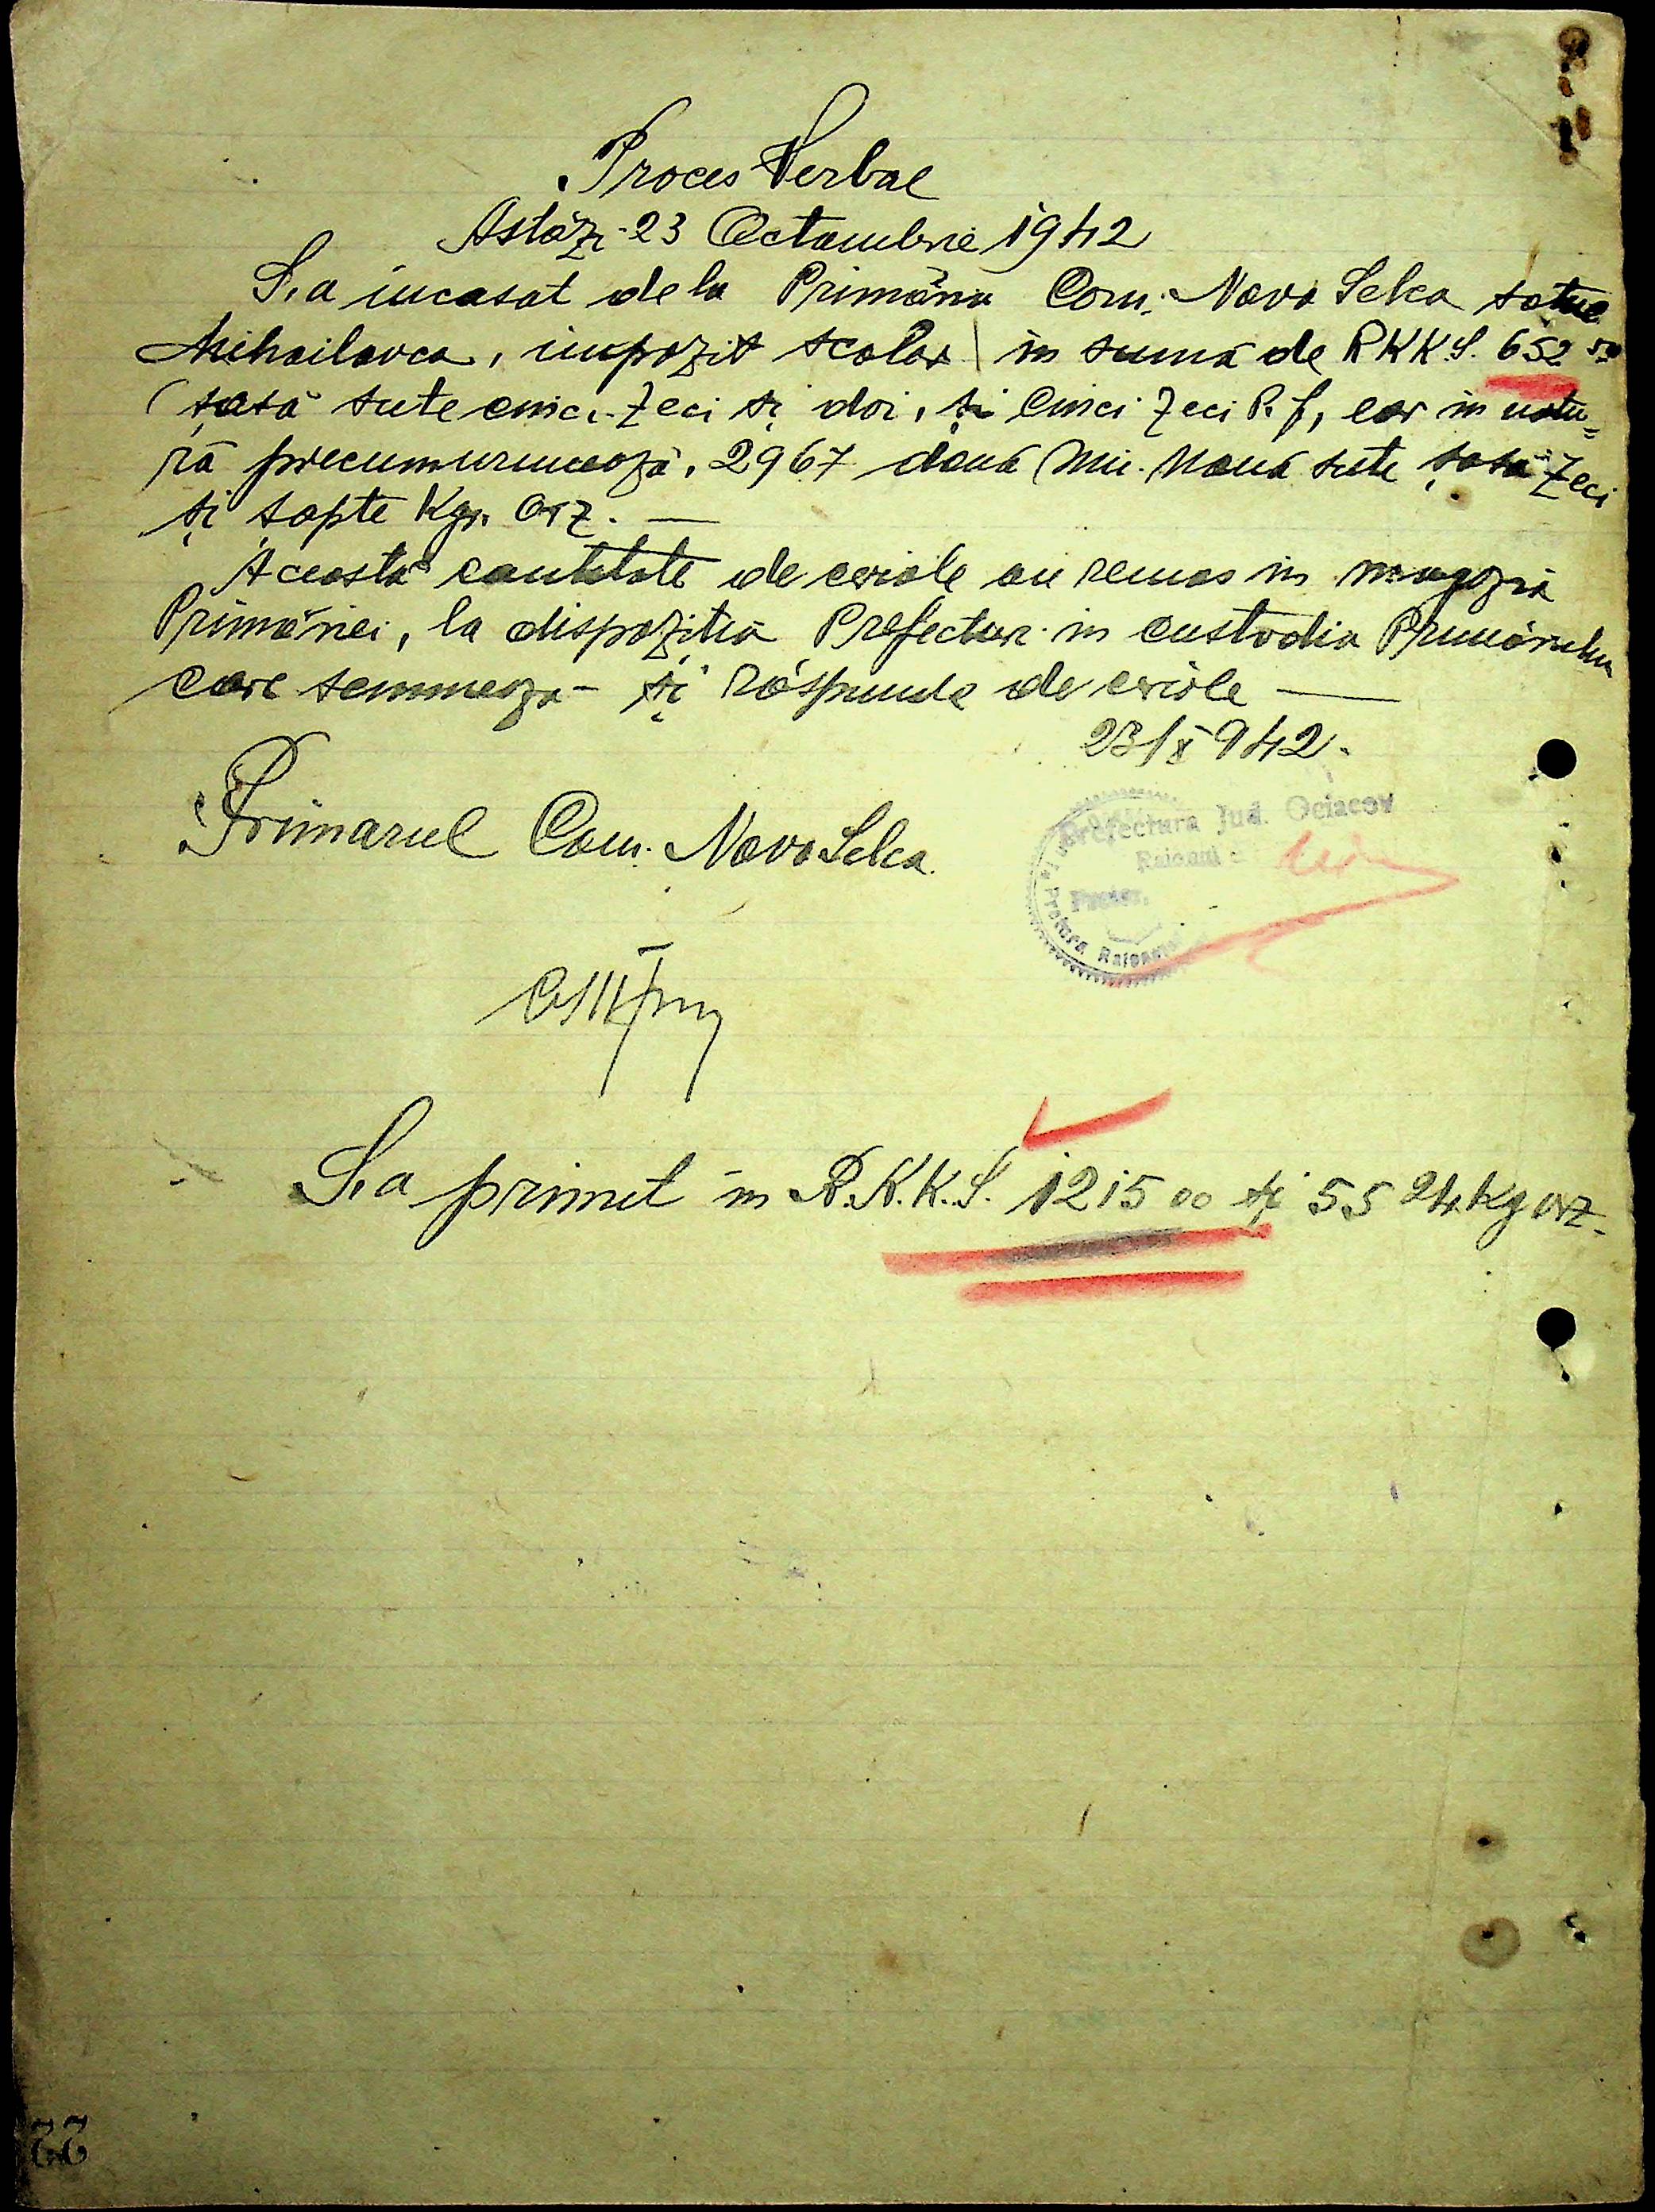 Proces Verbal
Astăzi 23 Octambrie 1942
S,a incasat dela Primăria Com. Novo Selca satul
Mihailovca, impozit scolar in sumă de RKKS. 652 50
(șasă sute cinci-zeci și doi, și cinci zeci P.f, ear in natu=
ră precumurmează, 2967 două mii. Nouă sute șasă-zeci
și șapte Kgr. orz. —
Această cantitate de ceriale au remas in magazia
Primăriei, la dispoziția Prefectur in custodia Primărului
care semnează - și răspunde de ceriale —
23/X 942.
Primarul Com. Novo Selca.
Prefectura Jud. Ociacov
Pretor,
Pretura Raionului
S,a primit in R.K.K.S. 1215 00 și 5524 kg orz.
22